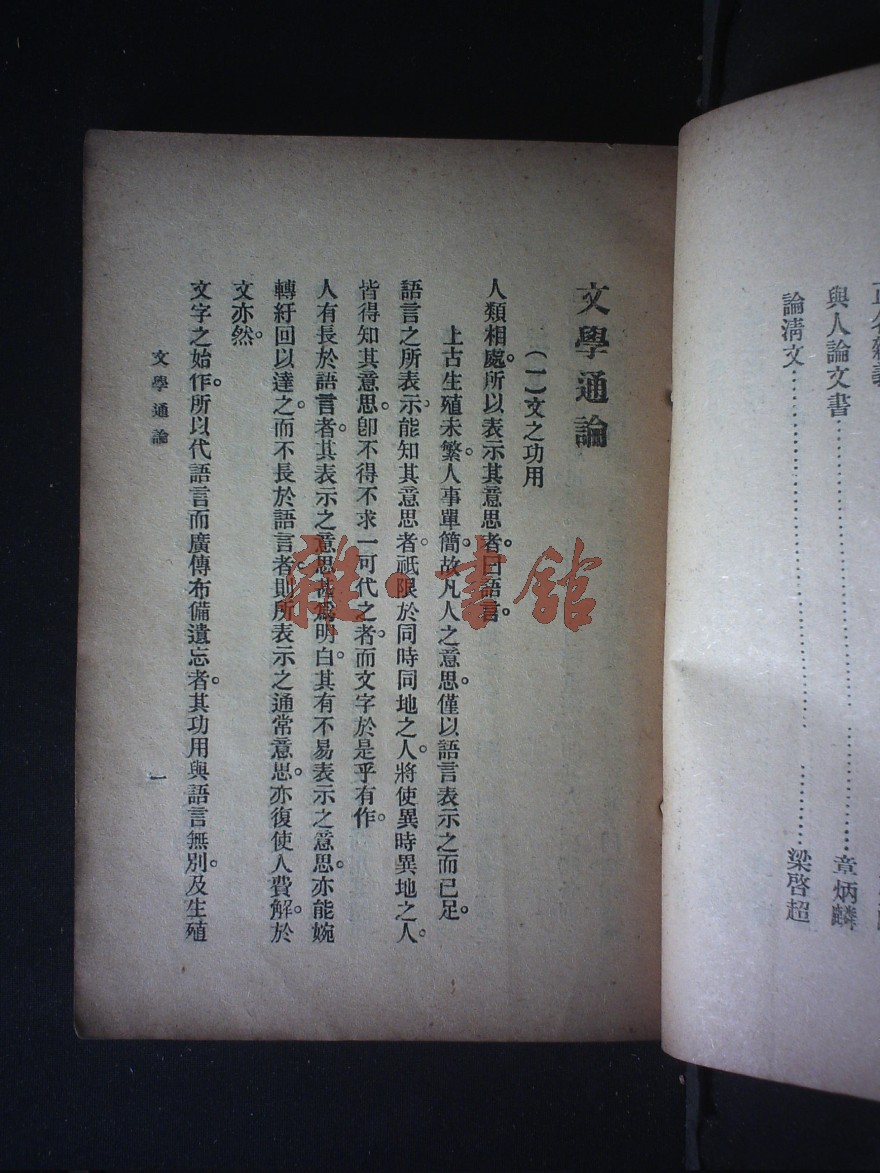 與人論文書……章炳麟
論清文……梁啓超
文學通論
(一)文之功用
人類相處。所以表示其意思者。曰語言。
上古生殖未繁。人事單簡。故凡人之意思。僅以語言表示之而已足。
語言之所表示。能知其意思者。祇限於同時同地之人。將使異時異地之人。
皆得知其意思。卽不得不求一可代之者。而文字於是乎有作。
人有長於語言者。其表示之意思甚爲明白。其有不易表示之意思。亦能婉
轉紆回以達之。而不長於語言者。則所表示之通常意思。亦復使人費解。於
文亦然。
文字之始作。所以代語言而廣傳布備遺忘者。其功用與語言無別。及生殖
文學通論
一
雜·書館